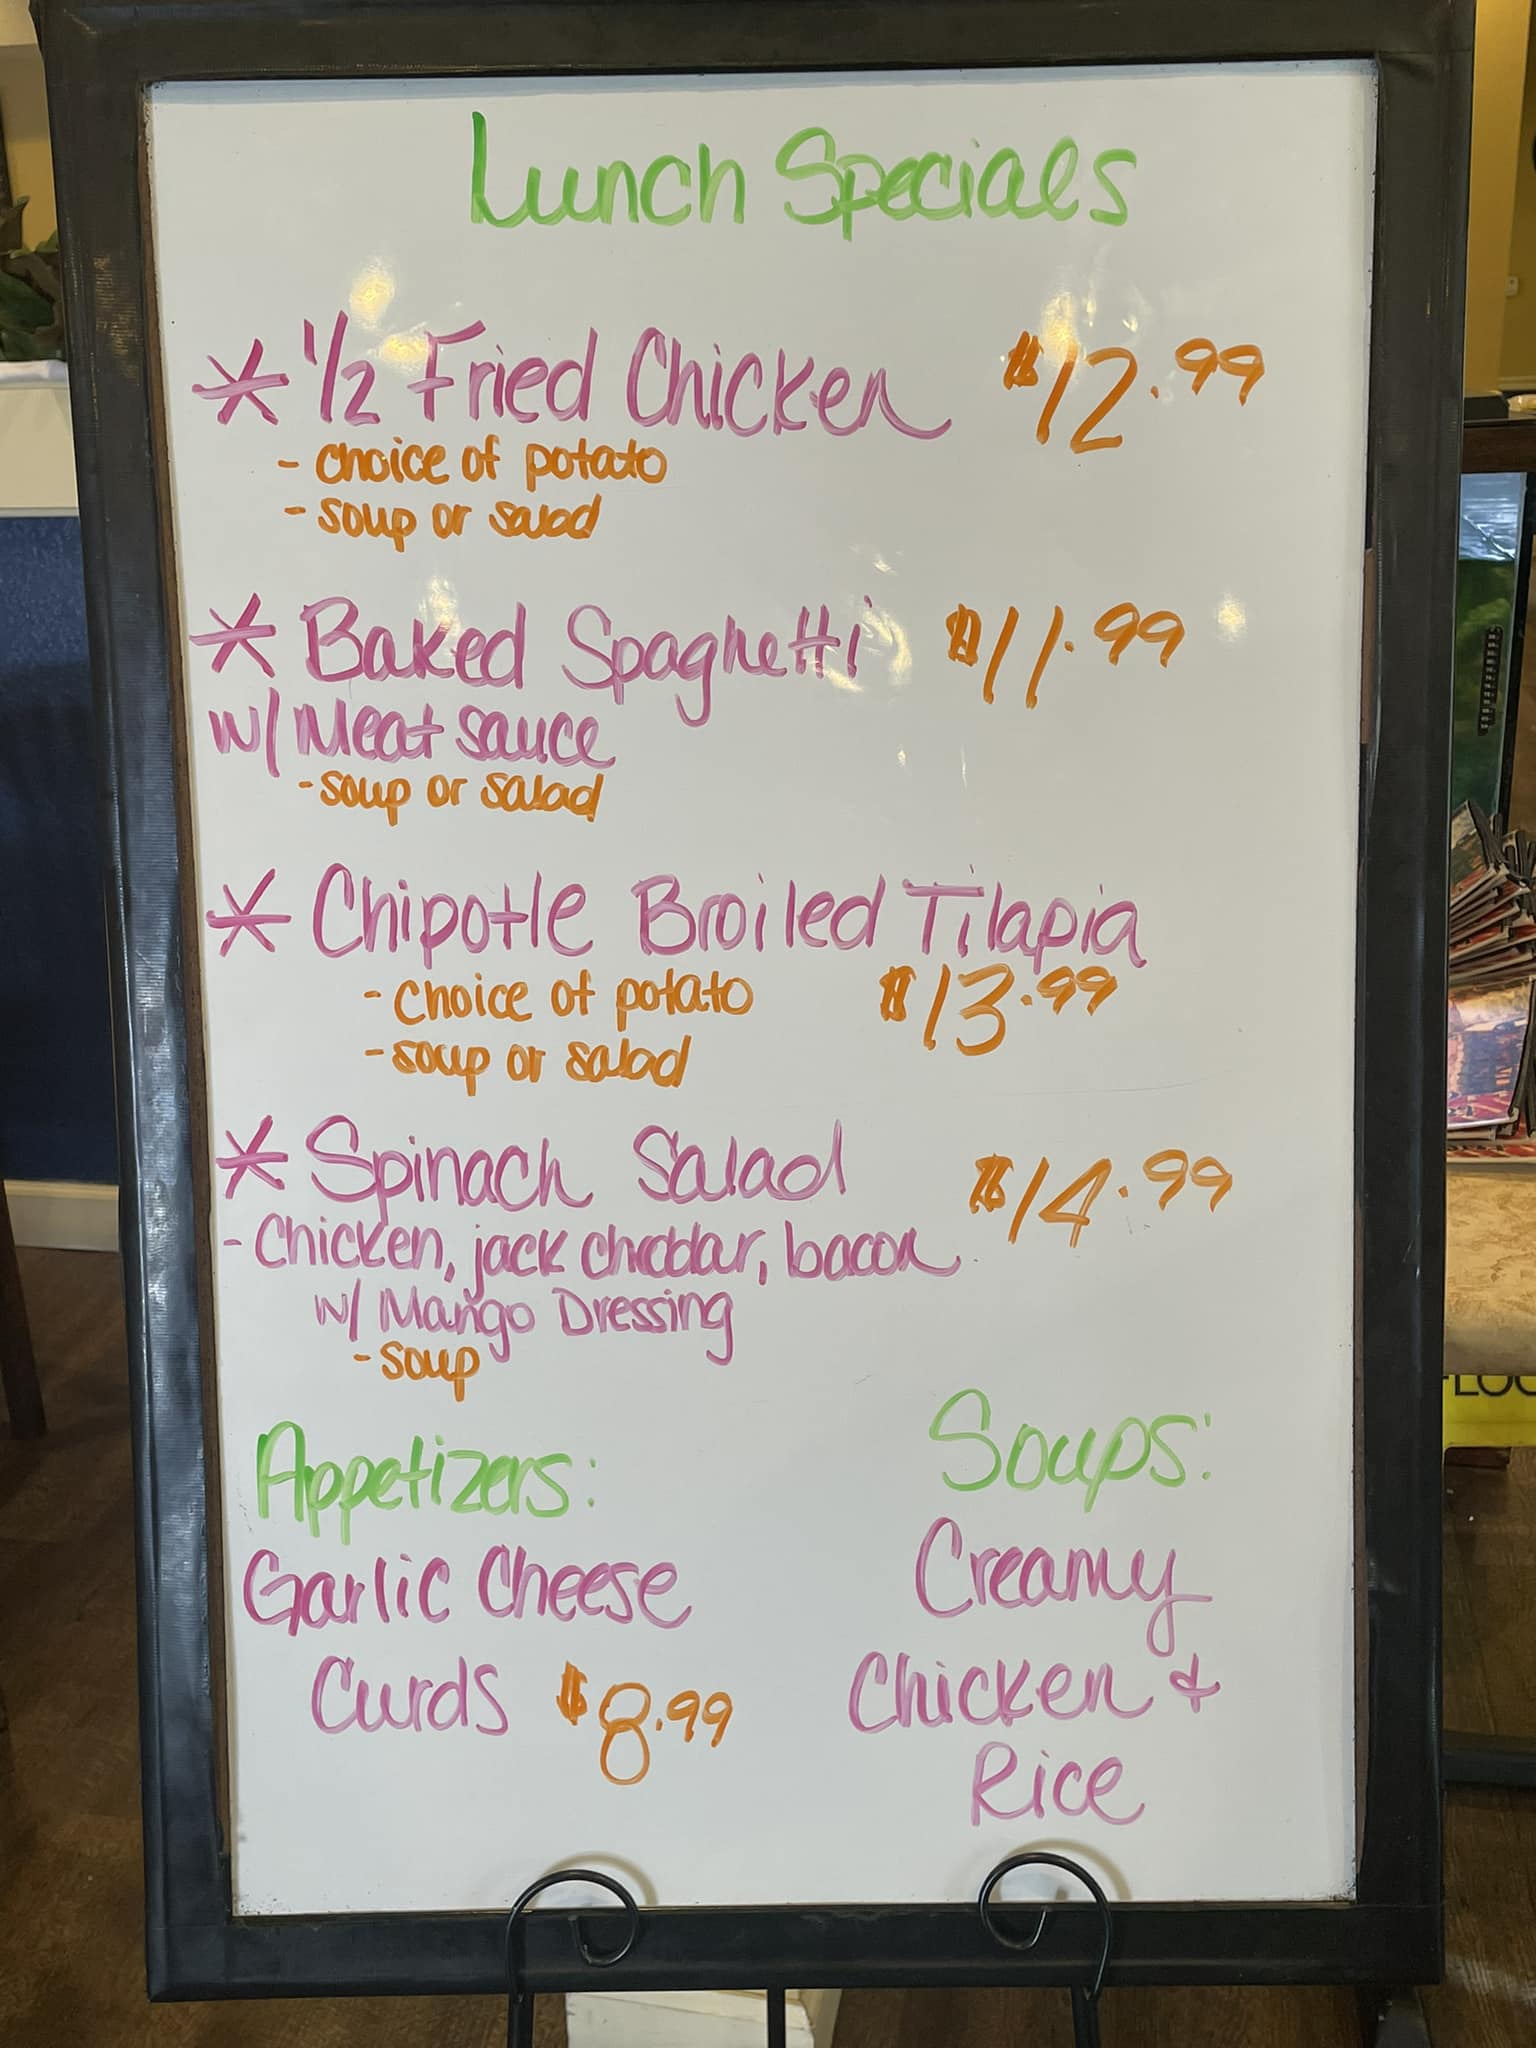 Lunch Specials
* 1/2 Fried Chicken $12.99
- choice of potato
- soup or salad
* Baked Spaghetti $11.99
w/ Meat sauce
- soup or salad
* Chipotle Broiled Tilapia
- choice of potato $13.99
- soup or salad
* Spinach Salad $14.99
- Chicken, jack cheddar, bacon
w/ Mango Dressing
- soup
Appetizers:
Garlic Cheese
Curds $8.99
Soups:
Creamy
Chicken &
Rice